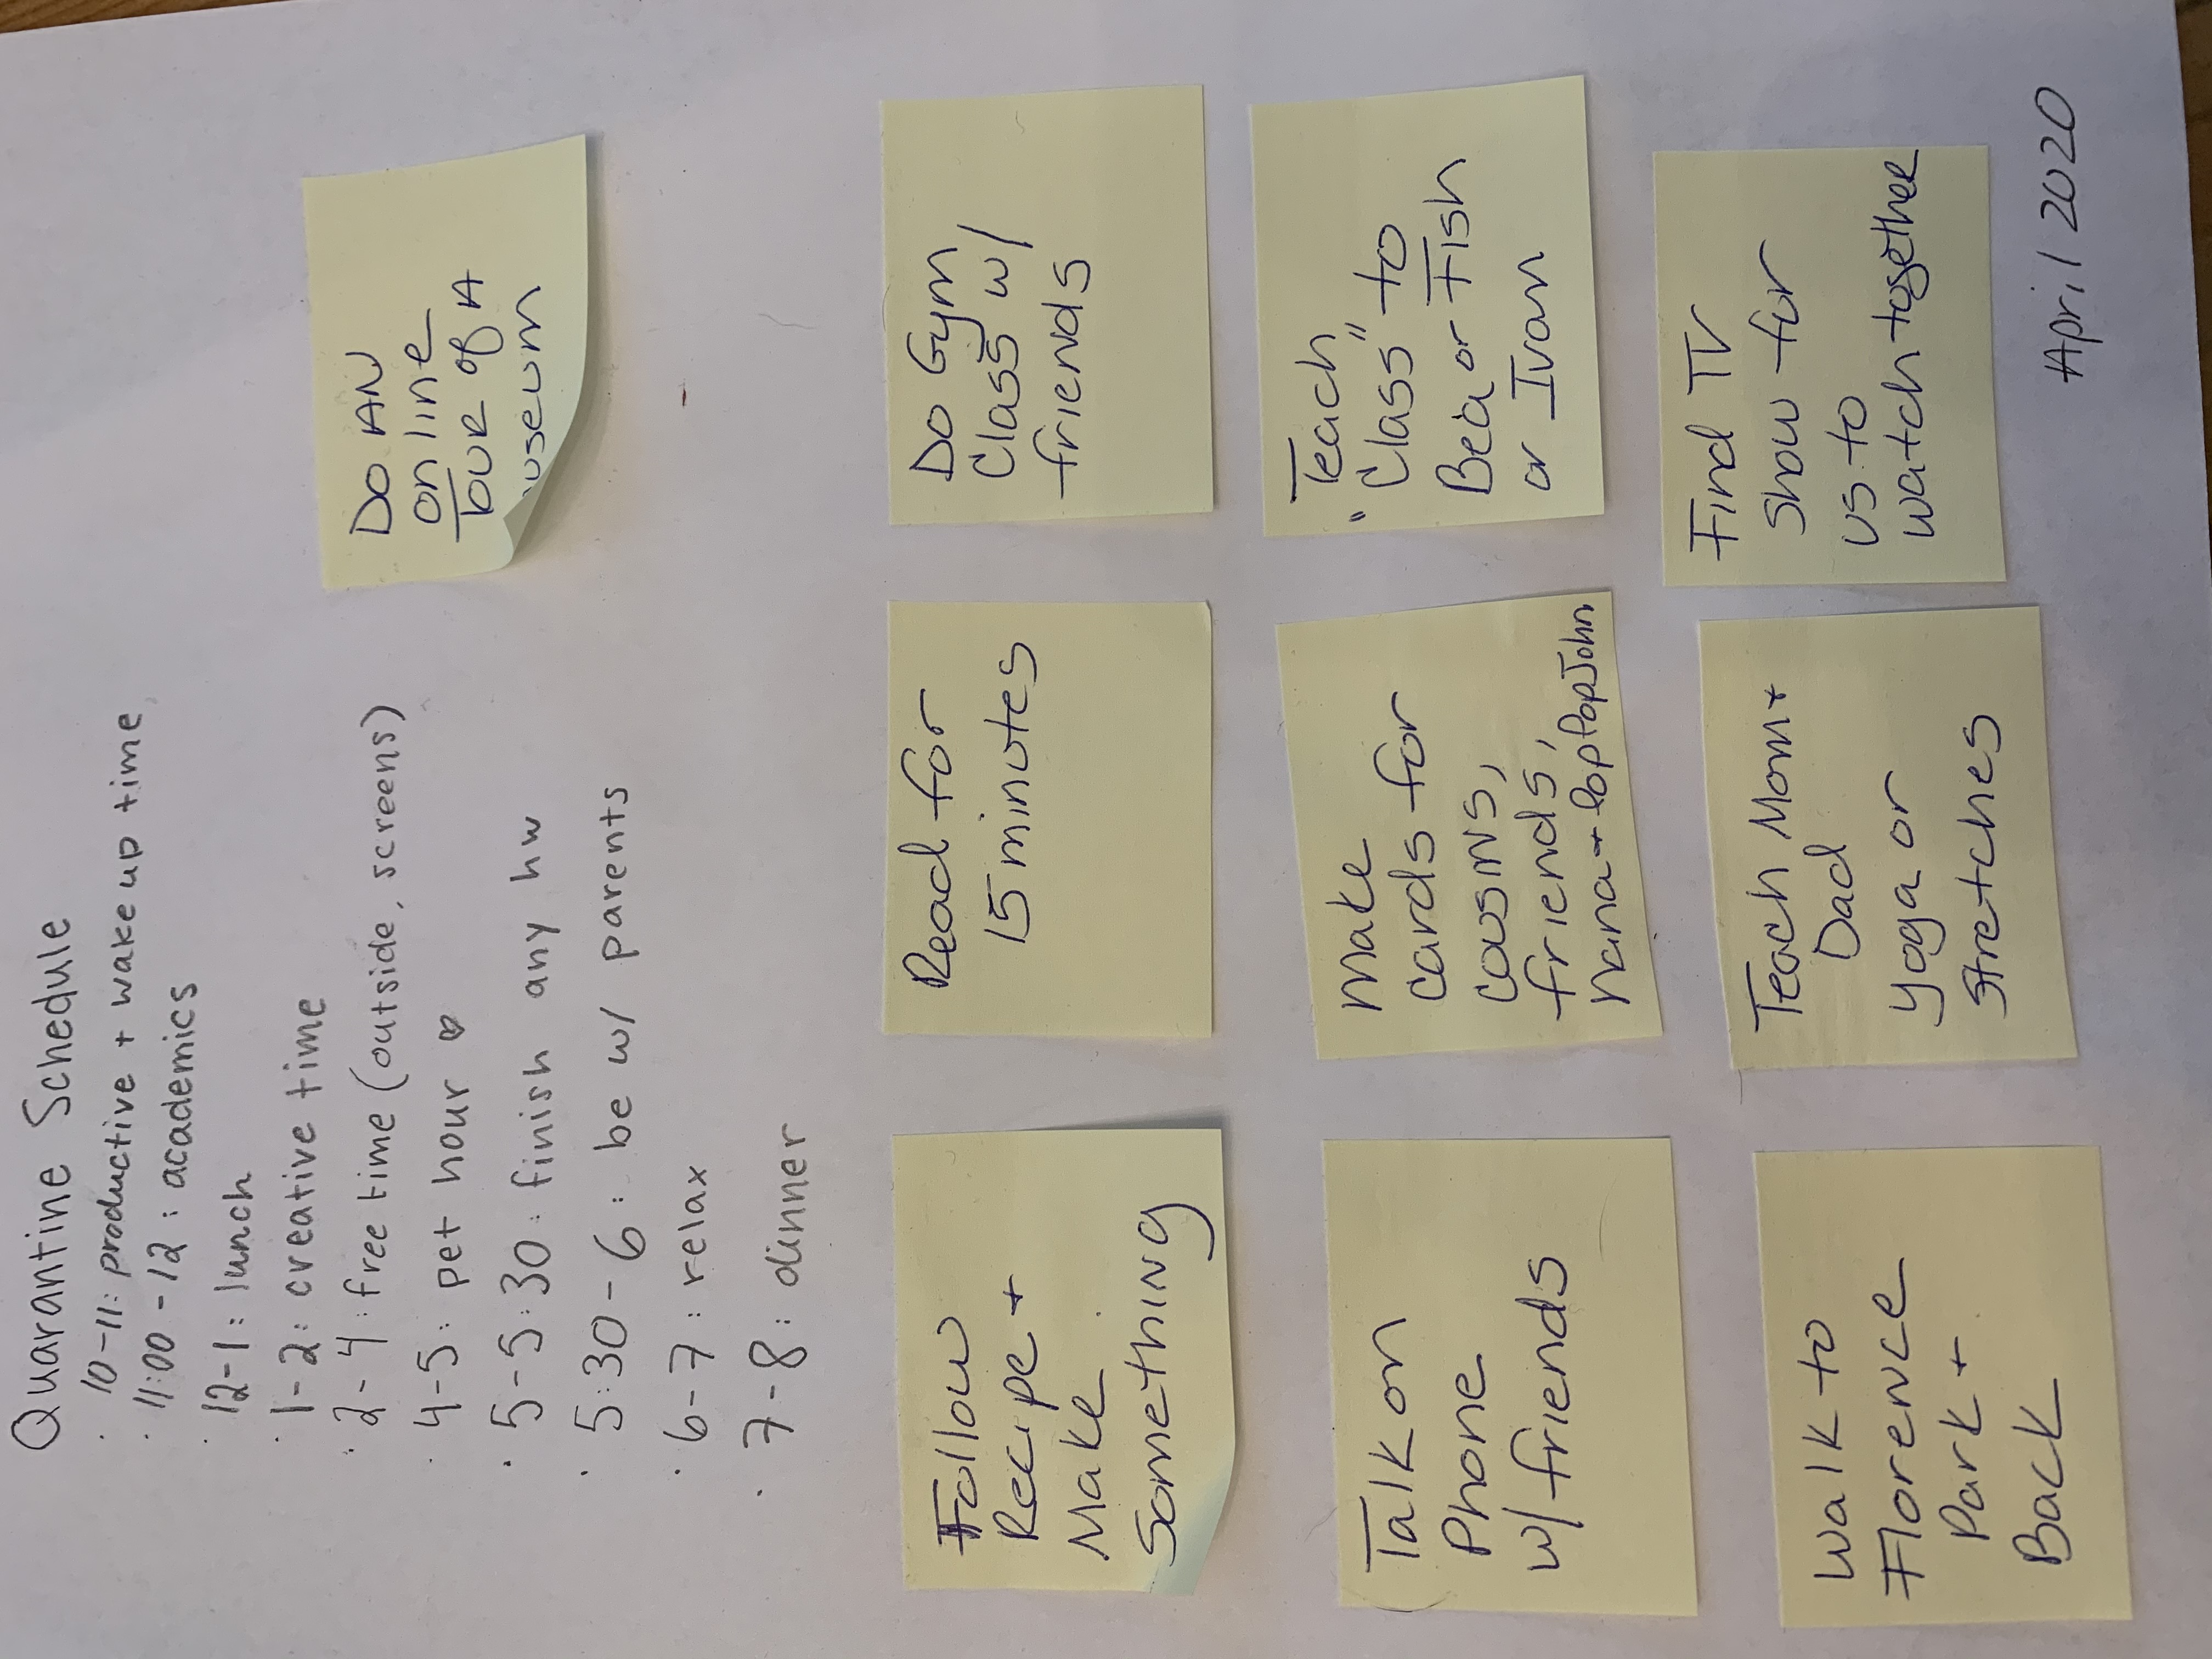 Quarantine Schedule
· 10-11: productive + wake up time
· 11:00-12: academics
· 12-1: lunch
· 1-2: creative time
· 2-4: free time (outside, screens)
· 4-5: pet hour ♡
· 5-5:30: finish any hw
· 5:30-6: be w/ parents
· 6-7: relax
· 7-8: dinner
Do AN
online
Tour of A
useum
Follow
Recipe +
Make
Something
Read for
15 minutes
Do Gym
Class w/
friends
Talk on
Phone
w/ friends
Make
cards for
cousins,
friends,
nana + PopPop John
Teach
"Class" to
Bea or Fish
or Ivan
Walk to
Florence
Park +
Back
Teach Mom +
Dad
yoga or
stretches
Find TV
show for
us to
watch together
April 2020